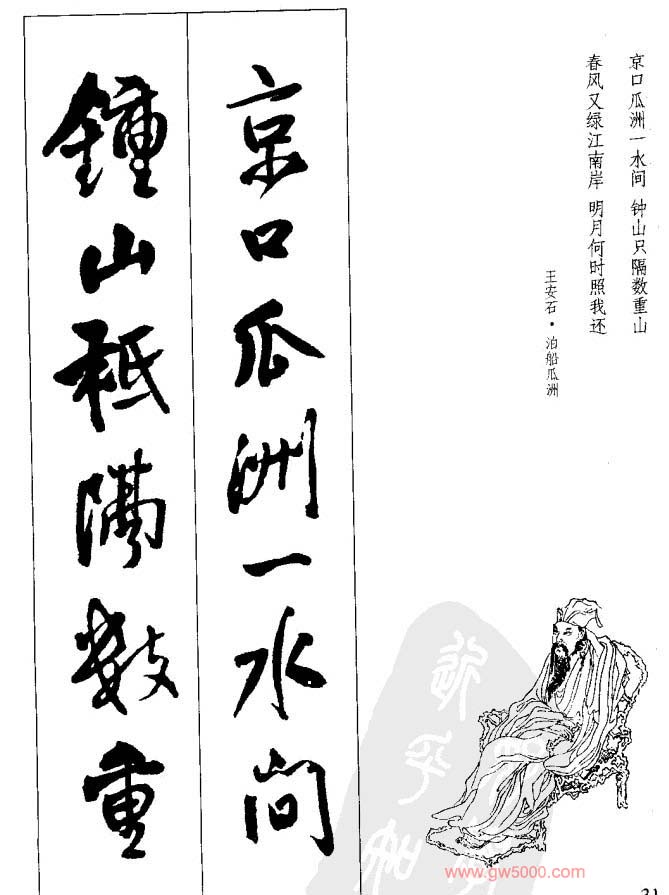 京口瓜洲一水间 钟山只隔数重山
春风又绿江南岸 明月何时照我还
王安石·泊船瓜洲
京口瓜洲一水间
鍾山秖隔数重
www.gw5000.com
31